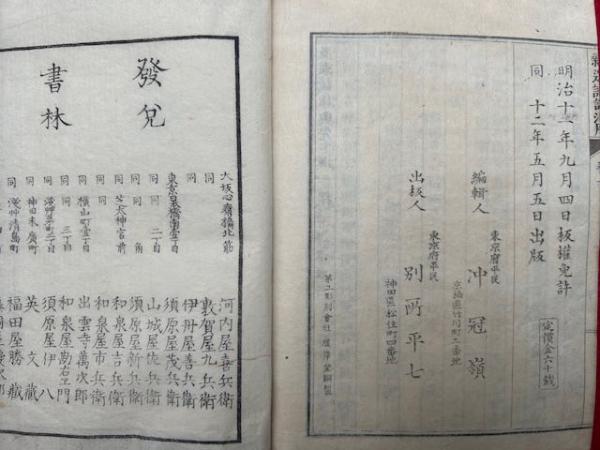 明治十一年九月四日板權免許
同 十二年五月五日出版
定價金六十錢
編輯人
東京府平民
沖冠嶺
京橋區竹川町二番地
出板人
東京府平民
別所平七
神田區松住町四番地
發兌
書林
大坂心齋橋北筋 河内屋喜兵衛
同 敦賀屋九兵衛
同 伊丹屋善兵衛
東京日本橋南壹丁目 須原屋茂兵衛
同 二丁目 山城屋佐兵衛
同 同 須原屋新兵衛
同 芝大神宮前 和泉屋吉兵衛
同 同 和泉屋市兵衛
同 横山町壹丁目 出雲寺萬次郎
同 同 三丁目 和泉屋勘右エ門
同 淺草茅町二丁目 須原屋伊八
同 神田末廣町 英文藏
同 淺艸清島町 福田屋勝藏